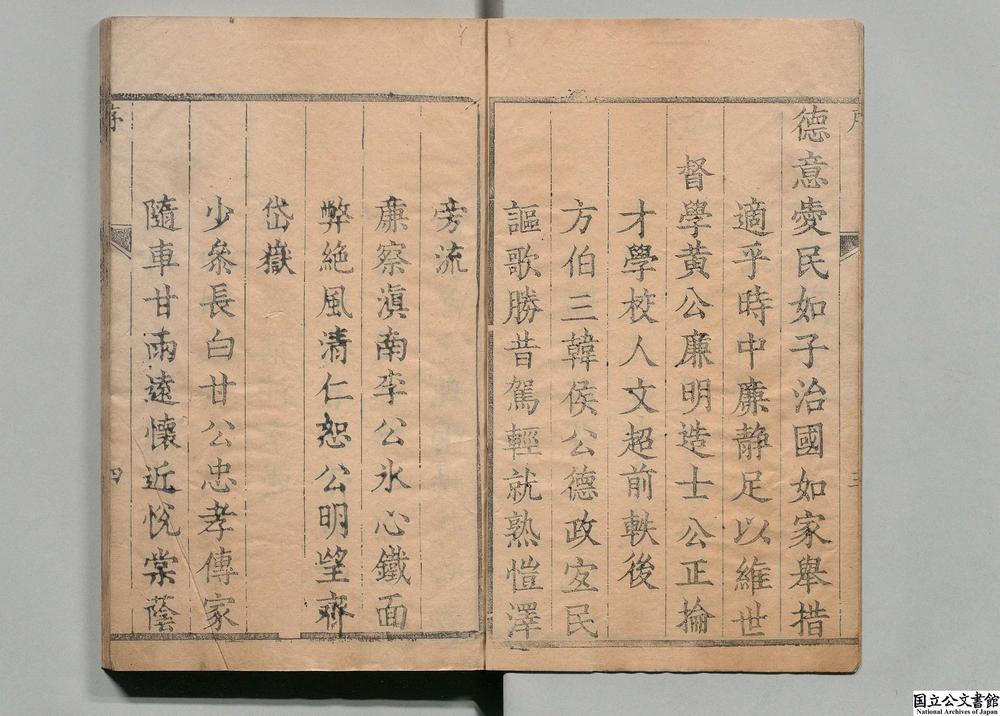 德意愛民如子治國如家舉措
適乎時中廉静足以維世
督學黄公廉明造士公正掄
才學校人文超前軼後
方伯三韓侯公德政宜民
謳歌勝昔駕輕就熟愷澤
三
旁流
廉察滇南李公氷心鐵面
弊絶風清仁恕公明望齊
岱嶽
少叅長白甘公忠孝傳家
隨車甘雨遠懷近悅棠蔭
序
四
国立公文書館
National Archives of Japan